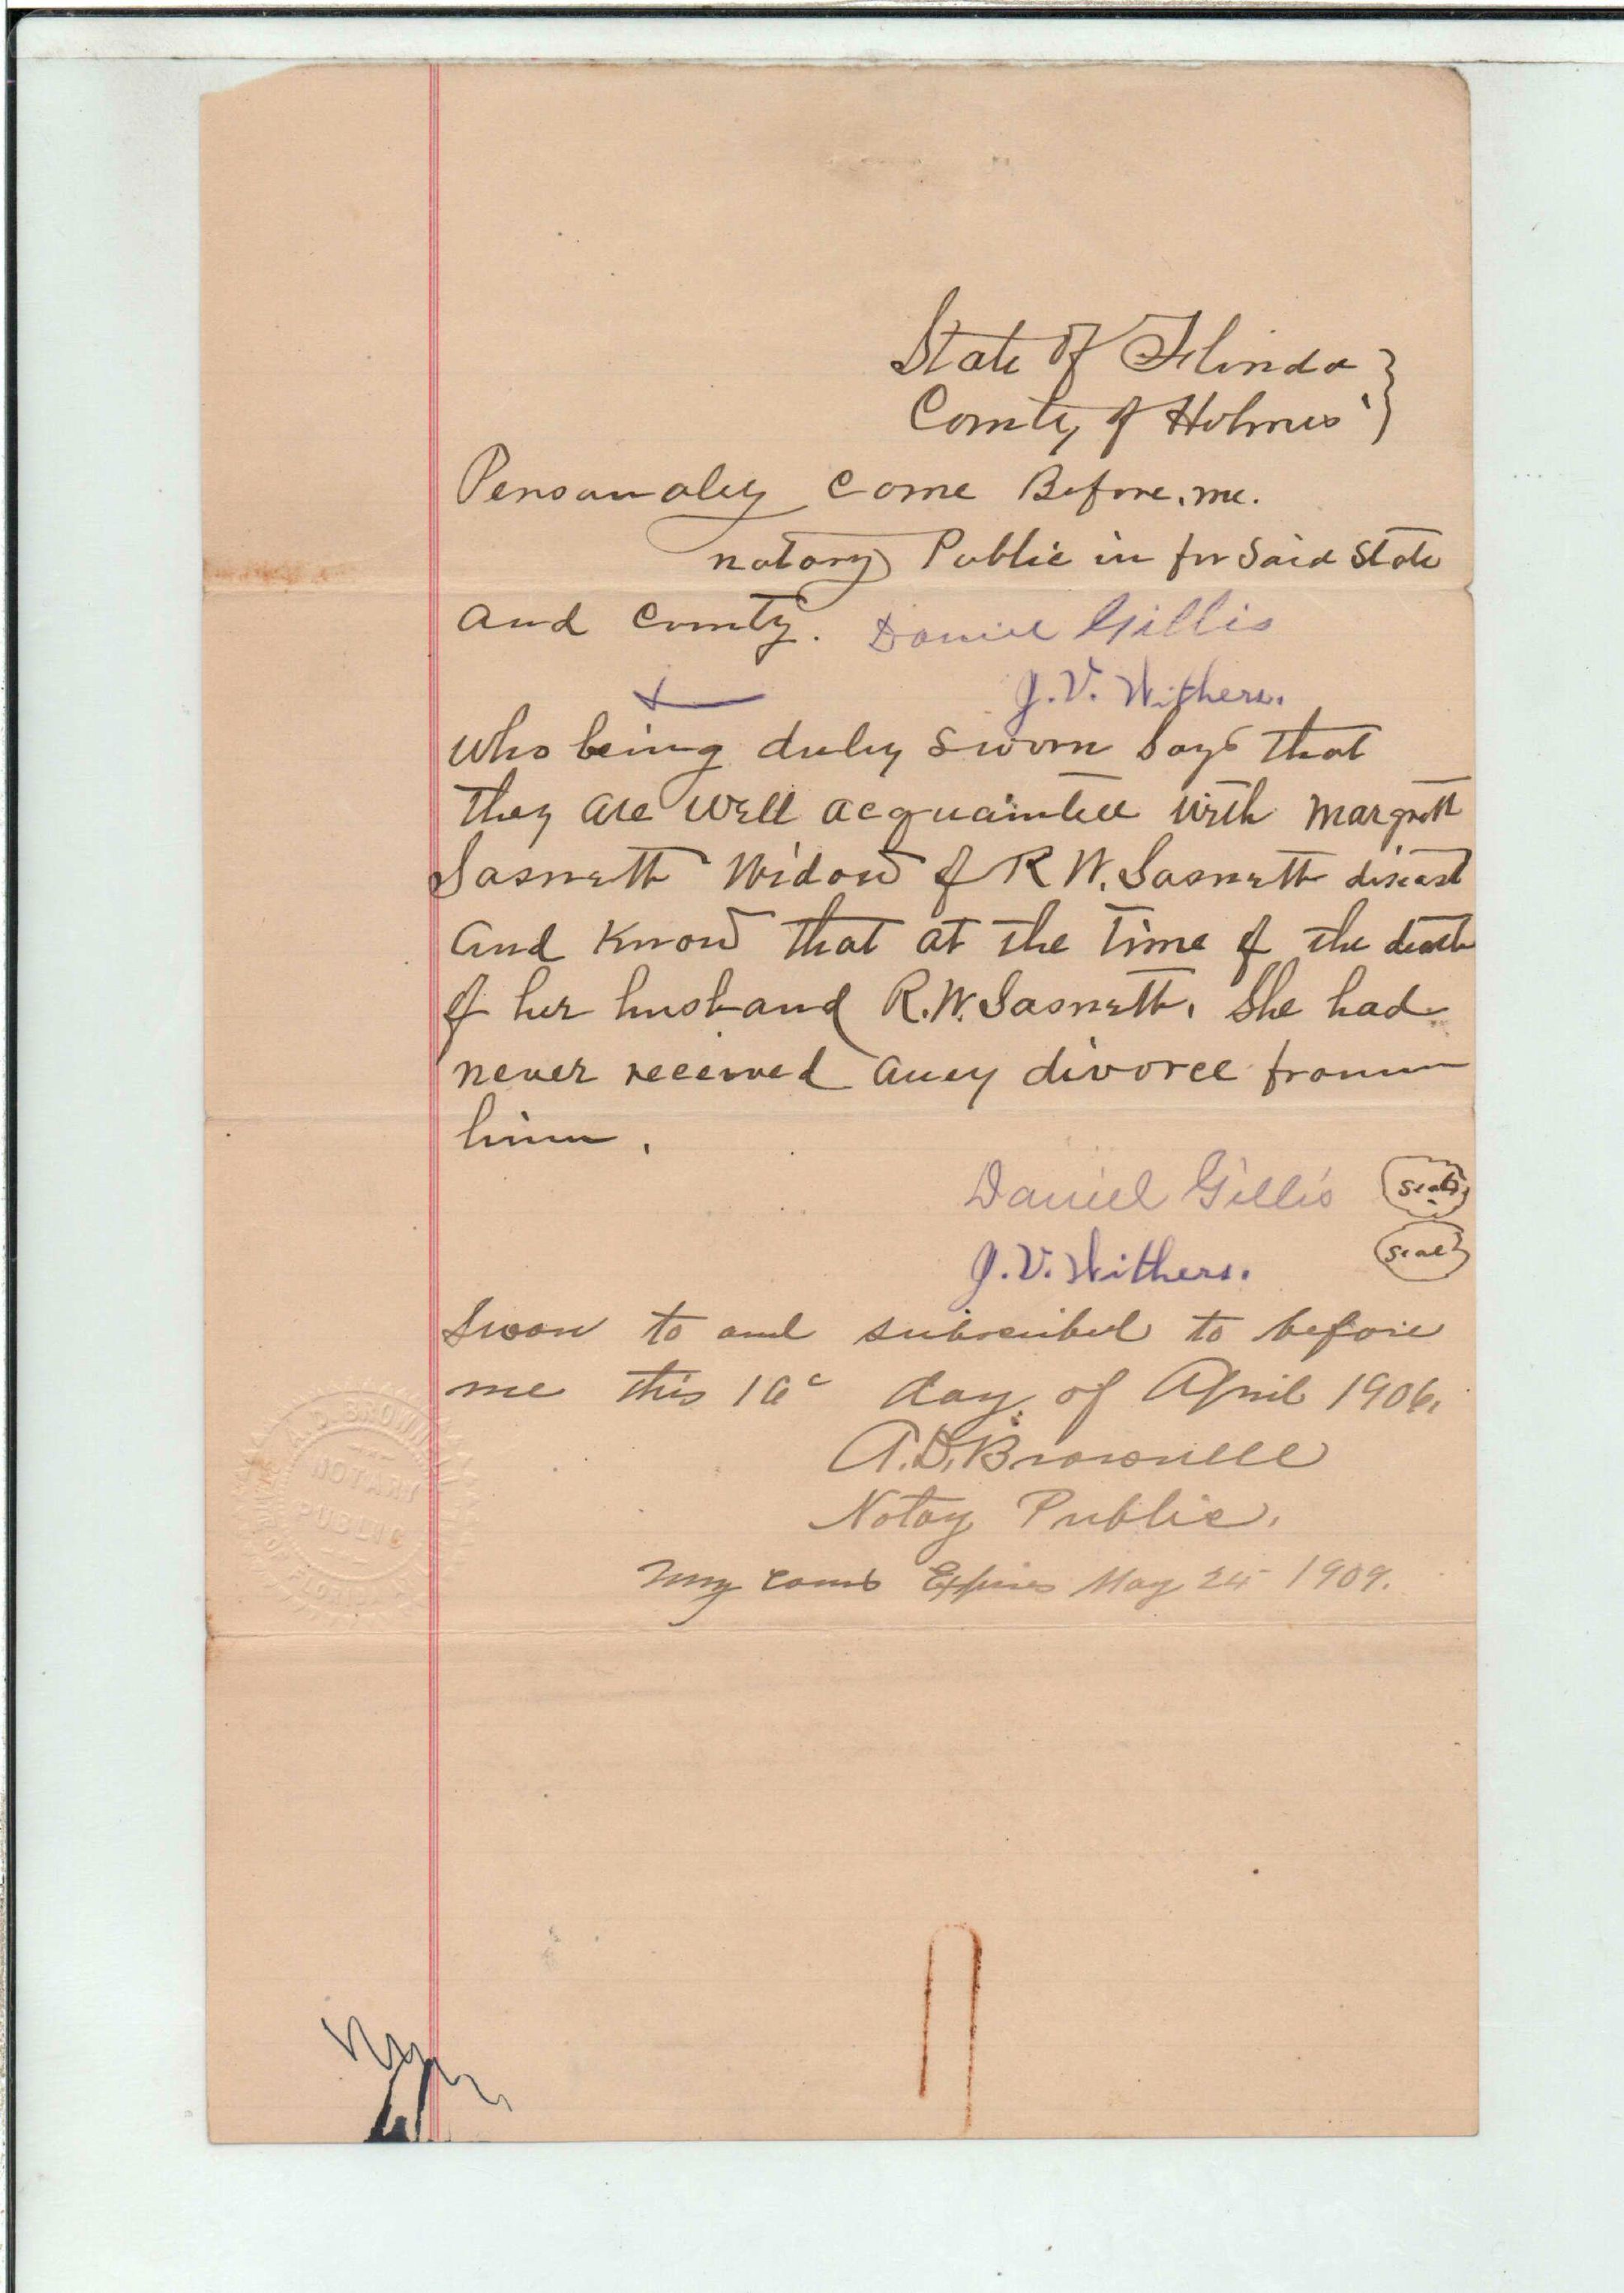 State of Florida }
County of Holmes }
Personaley Come Before me.
notory Public in for Said State
and County. Daniel Gillis
J.V. Withers.
who being duley sworn says that
they are well acquainted with Margrett
Sasnett Widow of R W. Sasnett diseast
and Know that at the time of the death
of her husband R.W. Sasnett. She had
never received aney divorce from
him.
Daniel Gillis Seal
J.V. Withers. Seal
Sworn to and subscribed to before
me this 16 day of April 1906.
A.D. Brownell
Notay Public.
My Coms Expires May 24 1909.
A. D. BROWN
NOTARY
PUBLIC
OF FLORIDA